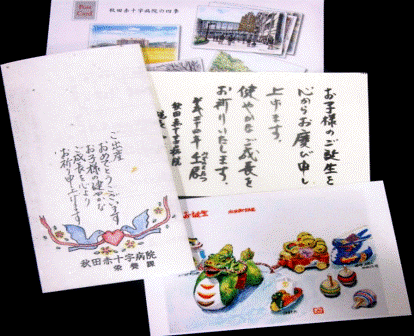 Post Card
秋田赤十字病院の四季
お子様のご誕生を
心からお慶び申し
上げます。
健やかなご成長を
お祈りいたします。
秋田赤十字病院
ご出産
おめでとうございます
お子様の健やかな
ご成長を心より
お祈り申し上げます
秋田赤十字病院
栄養課
お誕生